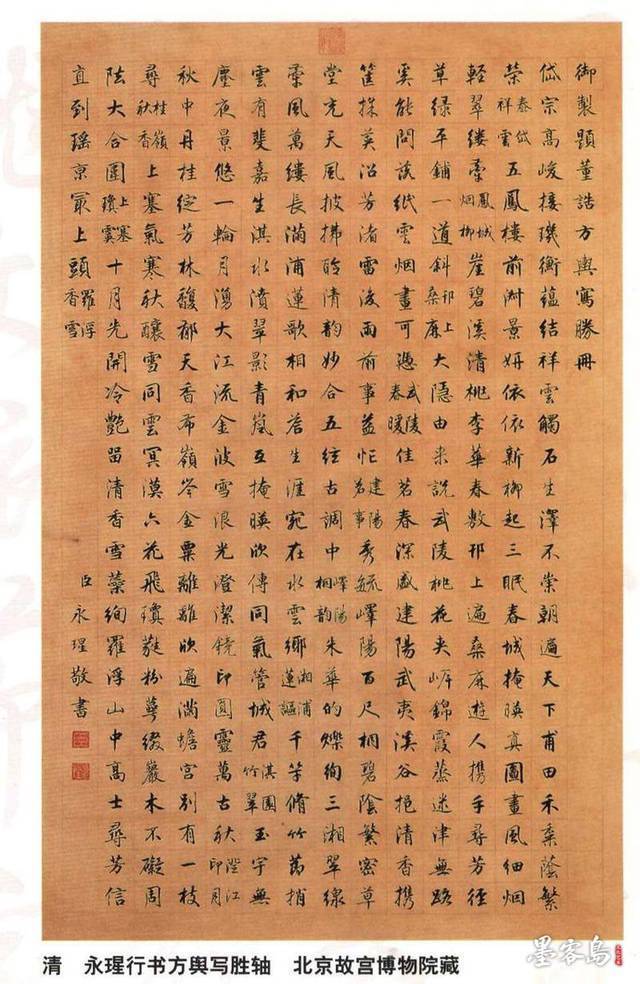 御製題董誥方輿寫勝冊
岱宗高峻接璣衡蘊結祥雲觸石生澤不崇朝遍天下甫田禾黍蔭繁
榮泰岱祥雲五鳳樓前淑景妍依依新柳起三眠春城掩暎真圖畫風細烟
輕翠縷牽鳳城烟柳崖碧溪清桃李華春敷邗上遍桑麻遊人携手尋芳徑
草綠平鋪一道斜邗上桑麻大隱由來說武陵桃花夾岸錦霞蒸迷津無路
奚能問該紙雲烟畫可憑武陵春暖佳茗春深盛建陽武夷溪谷挹清香携
筐採英沿芳渚雷後雨前事益忙建陽茗事秀毓嶧陽百尺桐碧陰繁密草
堂充天風披拂聆清韵妙合五絃古調中嶧陽桐韵朱華的爍絢三湘翠線
牽風萬縷長滿浦蓮歌相和答生涯宛在水雲鄉湘浦蓮謳千竿脩竹捎
雲有斐嘉生淇水濆翠影青嵐互掩暎欣傳同氣管城君淇園竹翠玉宇無
塵夜景悠一輪月湧大江流金波雪浪光澄潔鏡印圓靈萬古秋澄江印月
秋中丹桂綻芳林馥郁天香布嶺岑金粟離離欣遍滿蟾宮別有一枝
尋桂嶺秋香上塞氣寒秋釀雪同雲冥漠六花飛瓊蕤粉萼綴巖木不礙周
阹大合圍上塞瓊霙十月先開冷艷留清香雪蘂絢羅浮山中高士尋芳信
直到瑤京最上頭羅浮香雪
臣永瑆敬書
清 永瑆行书方舆写胜轴 北京故宫博物院藏
墨客岛